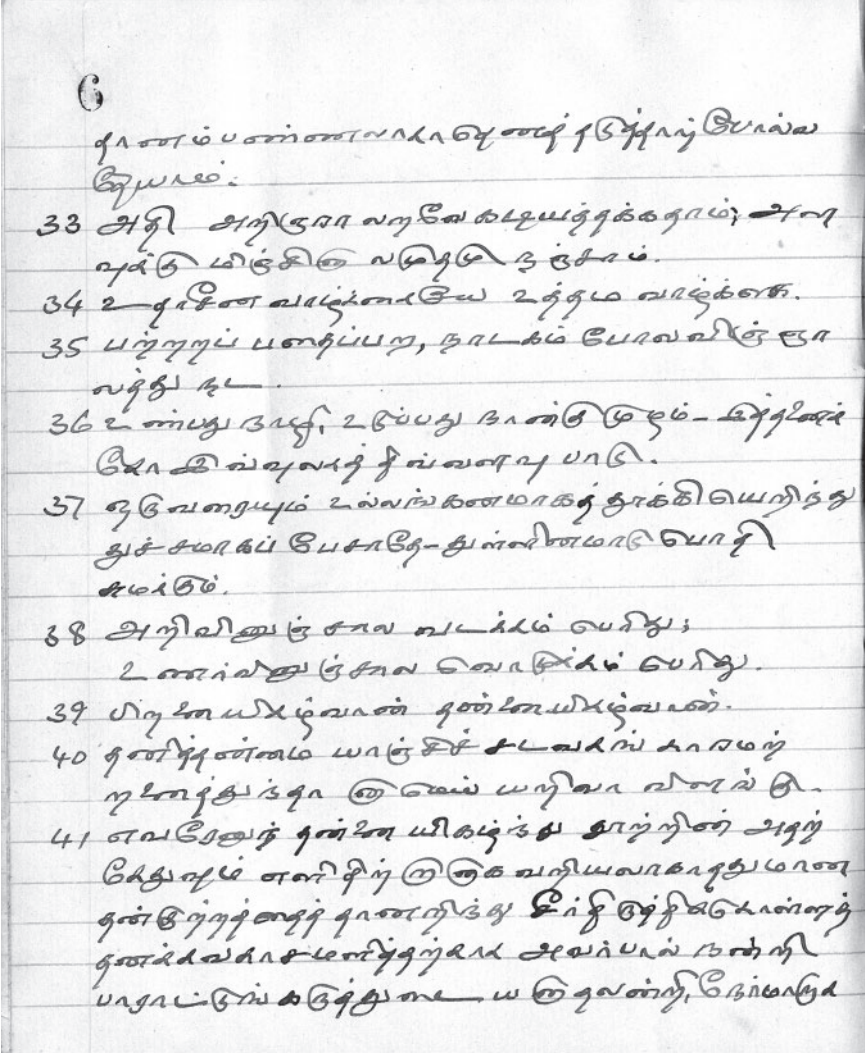 6
தானம்பண்ணலாகாதெனத் தடுத்தாற் போல்வ
தேயாம்.
33 அதி அறிஞரா லறவே கடியத்தக்கதாம்; அள
வுக்கு மிஞ்சினா லமுதமு நஞ்சாம்.
34 உதாசீன வாழ்க்கையே உத்தம வாழ்க்கை.
35 பற்றறப் பதைப்பற, நாடகம் போலவிஞ் ஞா
லத்து நட.
36 உண்பது நாழி, உடுப்பது நான்கு முழம் - இத்தனைக்
கோ இவ்வுலகத் திவ்வளவு பாடு.
37 ஒருவரையும் உல்லங்கனமாகத் தூக்கியெறிந்து
துச்சமாகப் பேசாதே - துள்ளினமாடு பொதி
சுமக்கும்.
38 அறிவினுஞ் சால வடக்கம் பெரிது;
உணர்வினுஞ்சால வொழுக்கம் பெரிது.
39 பிறனையிகழ்வான் தன்னையிகழ்வான்.
40 தனித்தன்மை யாஞ்சிச் சடவகங் காரமற்
றனைத்துந்தா னாமெய் யறிவா விளங்கு.
41 எவரேனுந் தன்னை யிகழ்ந்து தூற்றின் அதற்
கேதுவும் எளிதிற் றானாக வறியலாகாததுமான
தன்குற்றத்தைத் தானறிந்து சீர்திருத்திக்கொள்ளத்
தனக்கவகாசமளித்தற்காக அவர்பால் நன்றி
பாராட்டுங் கருத்துடைய னாதலன்றி, நேர்மாறாக